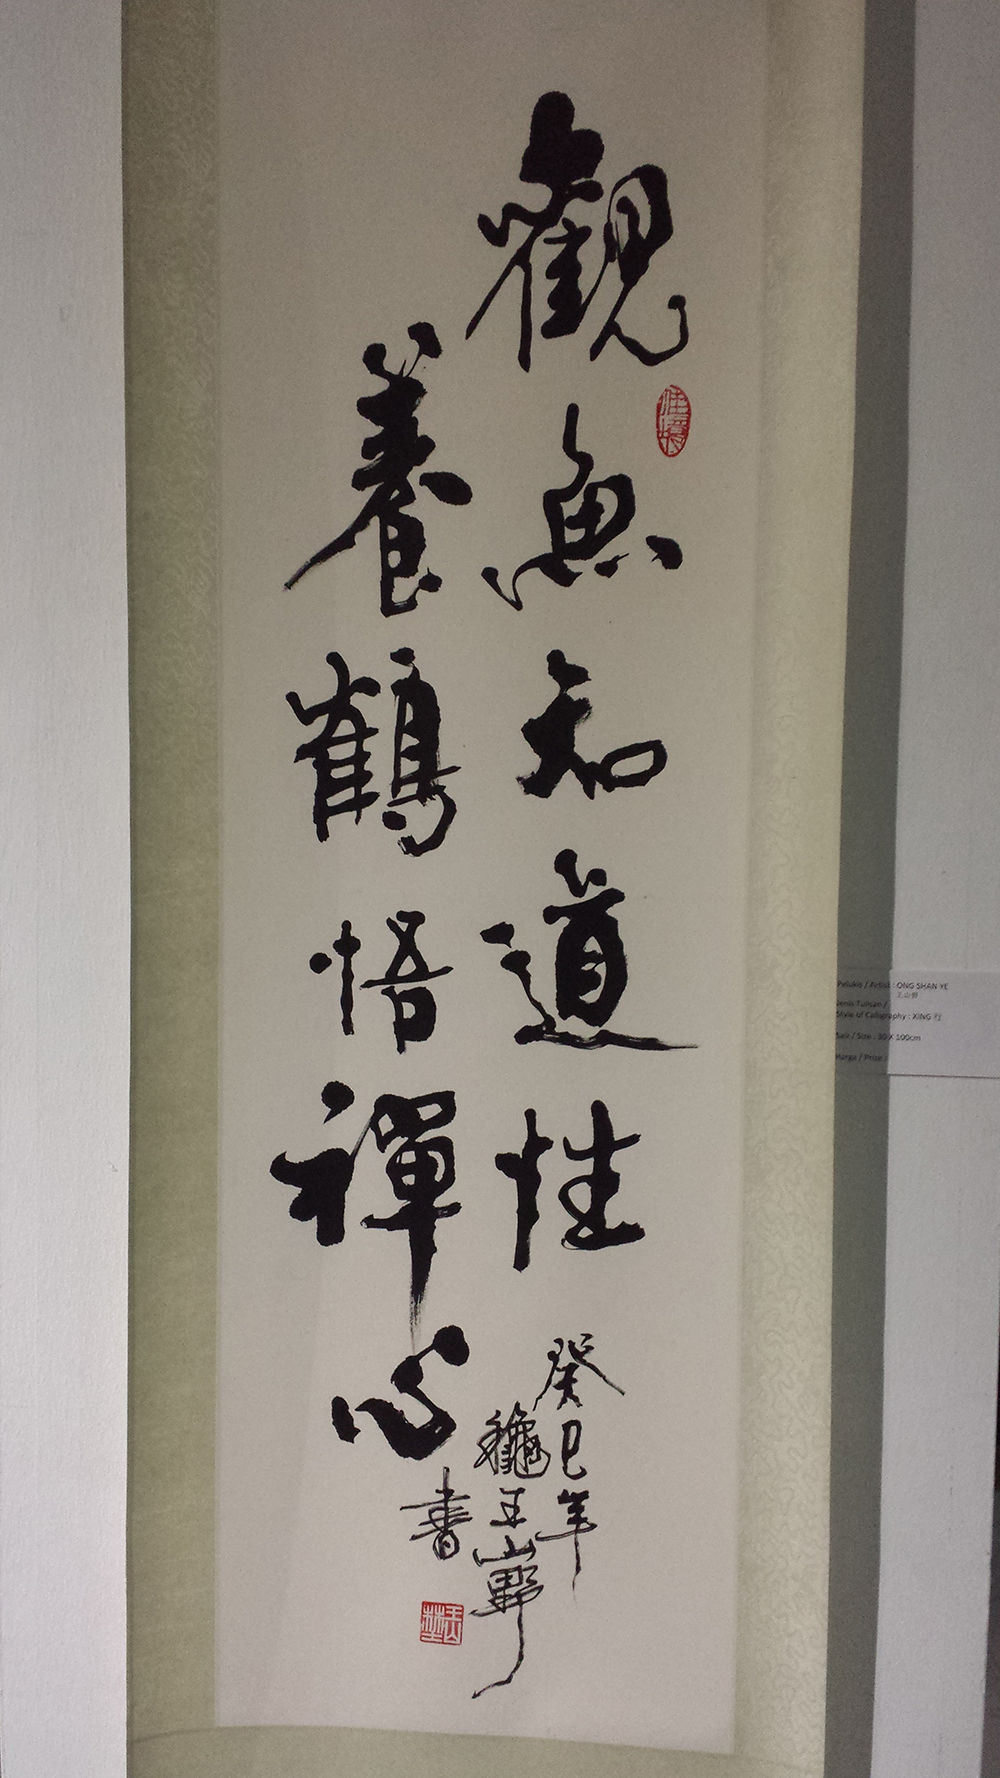 觀魚知道性
養鶴悟禪心
癸巳年
龝王山野
書
Pelukis / Artist : ONG SHAN YE
王山野
Jenis Tulisan /
Style of Caligraphy : XING 行
Saiz / Size : 30 X 100cm
Harga / Prize :